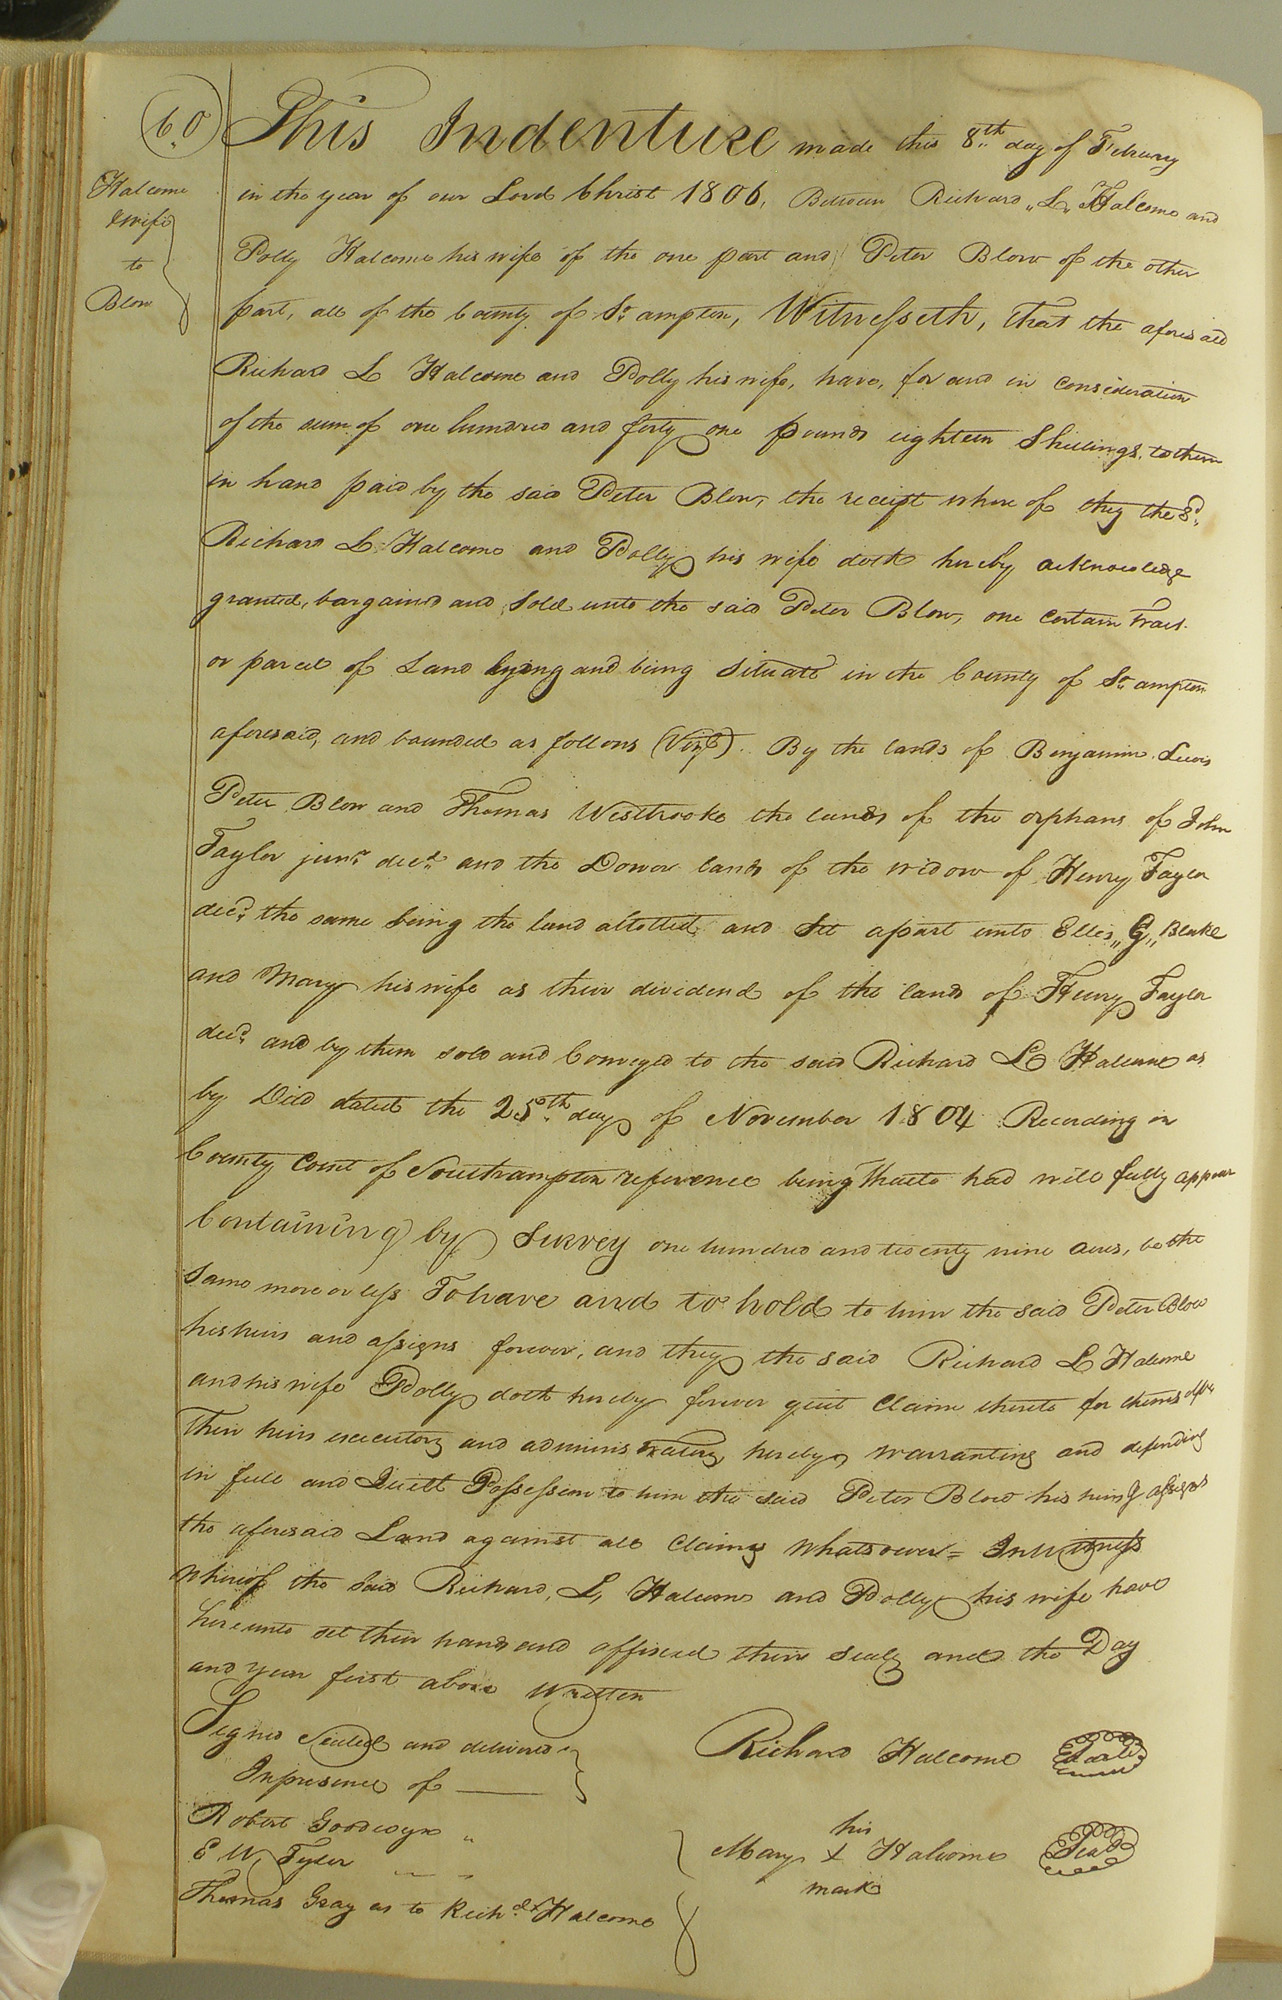 60
Halcome
& wife
to
Blow
This Indenture made this 8th day of Febuary
in the year of our Lord Christ 1806, Between Richard "L" Halcome and
Polly Halcome his wife of the one part and Peter Blow of the other
part, all of the County of So. ampton, Witnesseth, that the aforesaid
Richard L Halcome and Polly his wife, have, for and in consideration
of the sum of one hundred and forty one pounds eighteen Shillings, to them
in hand paid by the said Peter Blow, the receipt where of they the sd.
Richard L Halcome and Polly his wife doth hereby acknowledge
granted, bargained and sold unto the said Peter Blow, one certain Tract
or parcel of Land lying and being situate in the County of So. ampton
aforesaid, and bounded as follows (Vizt). By the lands of Benjamin Lewis
Peter Blow and Thomas Westbrooke the lands of the orphans of John
Taylor junr. decd. and the Dower lands of the widow of Henry Taylor
decd. the same being the land allotted and set apart unto Elles "G" Blake
and Mary his wife as their dividend of the lands of Henry Taylor
decd. and by them sold and Conveyed to the said Richard L Halcome as
by Deed dated the 25th day of November 1804 Recording in
County Court of Southampton reference being thereto had will fully appear
Containing by Survey one hundred and twenty nine acres, be the
same more or less To have and to hold to him the said Peter Blow
his heirs and assigns forever, and they the said Richard L Halcome
and his wife Polly doth hereby forever quit Claim thereto for themselves
Their heirs executors and administrators, hereby warranting and defending
in full and Quiett Possession to him the said Peter Blow his heirs & assigns
the aforesaid Land against all Claims whatsoever = In witness
whereof the said Richard, L, Halcome and Polly his wife have
hereunto set their hands and affixed their seals and the Day
and year first above Written
Signed Sealed and delivered
In presence of
Richard Halcome Seal
Robert Goodwyn "
E W Tyler
Thomas Gray as to Richd. Halcome
his
Mary X Halcome Seal
mark